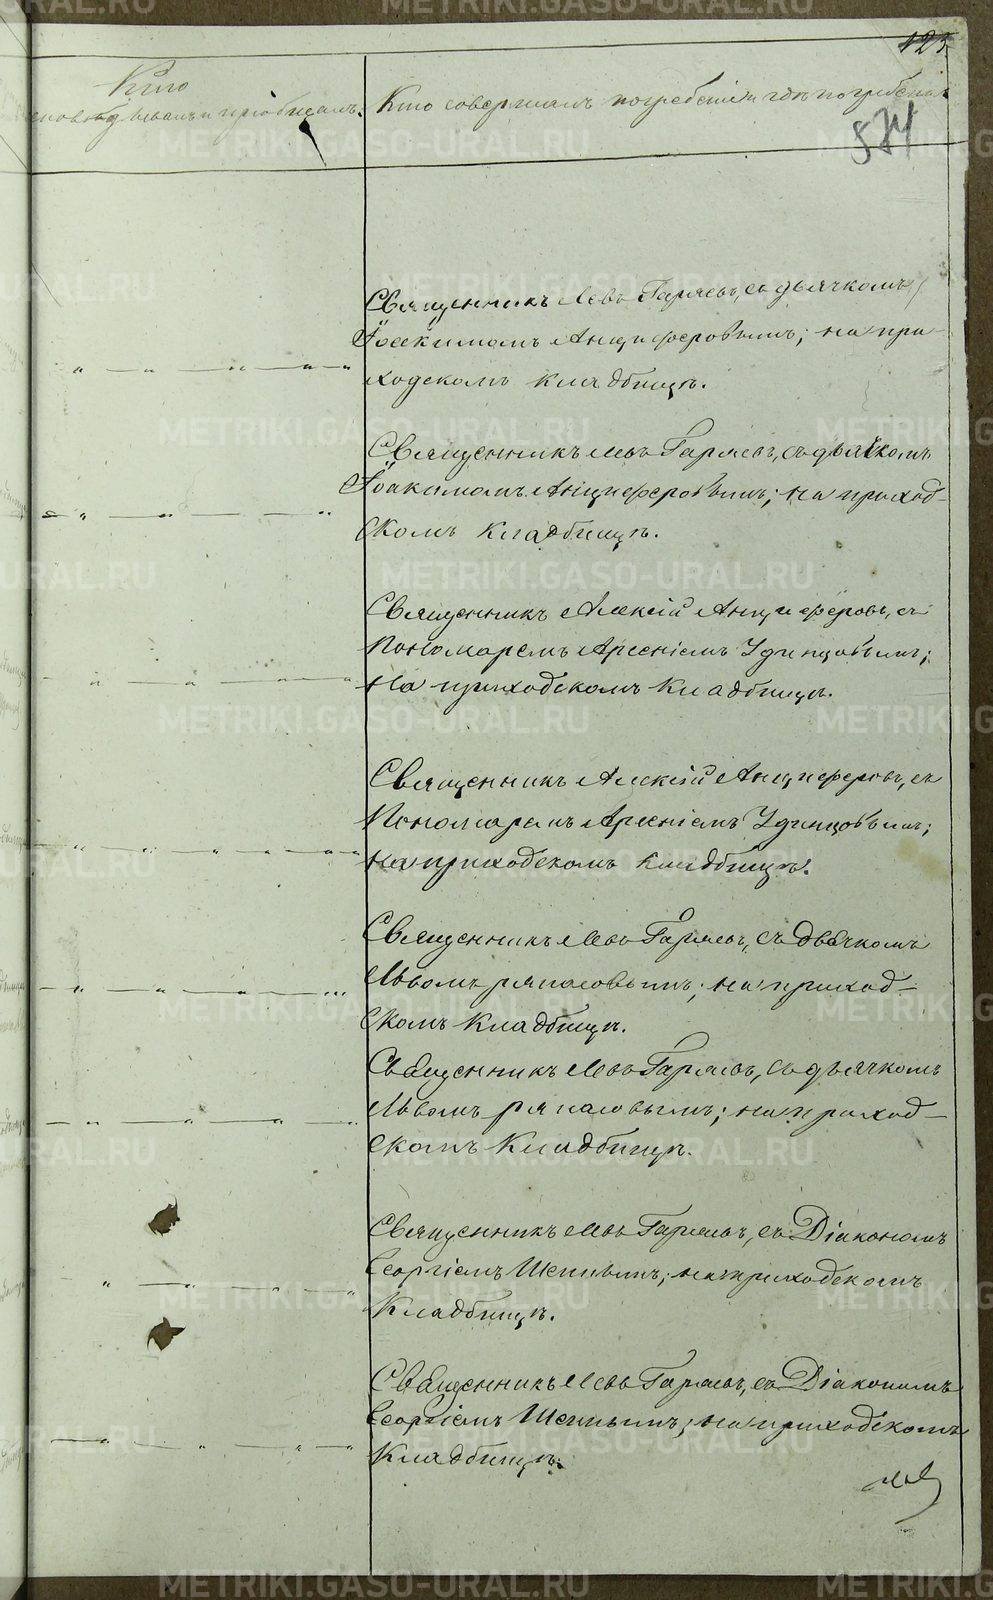 125
Кто
исповѣдывалъ и пріобщалъ.
Кто совершалъ погребеніе и гдѣ погребены.
574
Священникъ Левъ Гаряевъ, съ дьячкомъ
Іоакимомъ Анциферовымъ; на при-
ходскомъ кладбищѣ.
Священникъ Левъ Гаряевъ, съ дьячкомъ
Іоакимомъ Анциферовымъ; на приход-
скомъ кладбищѣ.
Священникъ Алексій Анциферовъ, съ
Пономаремъ Арсеніемъ Удинцовымъ;
на приходскомъ кладбищѣ.
Священникъ Алексій Анциферовъ, съ
Пономаремъ Арсеніемъ Удинцовымъ;
на приходскомъ кладбищѣ.
Священникъ Левъ Гаряевъ, съ дьячкомъ
Львомъ Ряпасовымъ; на приход-
скомъ кладбищѣ.
Священникъ Левъ Гаряевъ, съ дьячкомъ
Львомъ Ряпасовымъ; на приход-
скомъ кладбищѣ.
Священникъ Левъ Гаряевъ, съ Діакономъ
Георгіемъ на приходскомъ
кладбищѣ.
Священникъ Левъ Гаряевъ, съ Діакономъ
Георгіемъ на приходскомъ
кладбищѣ.
METRIKI.GASO-URAL.RU